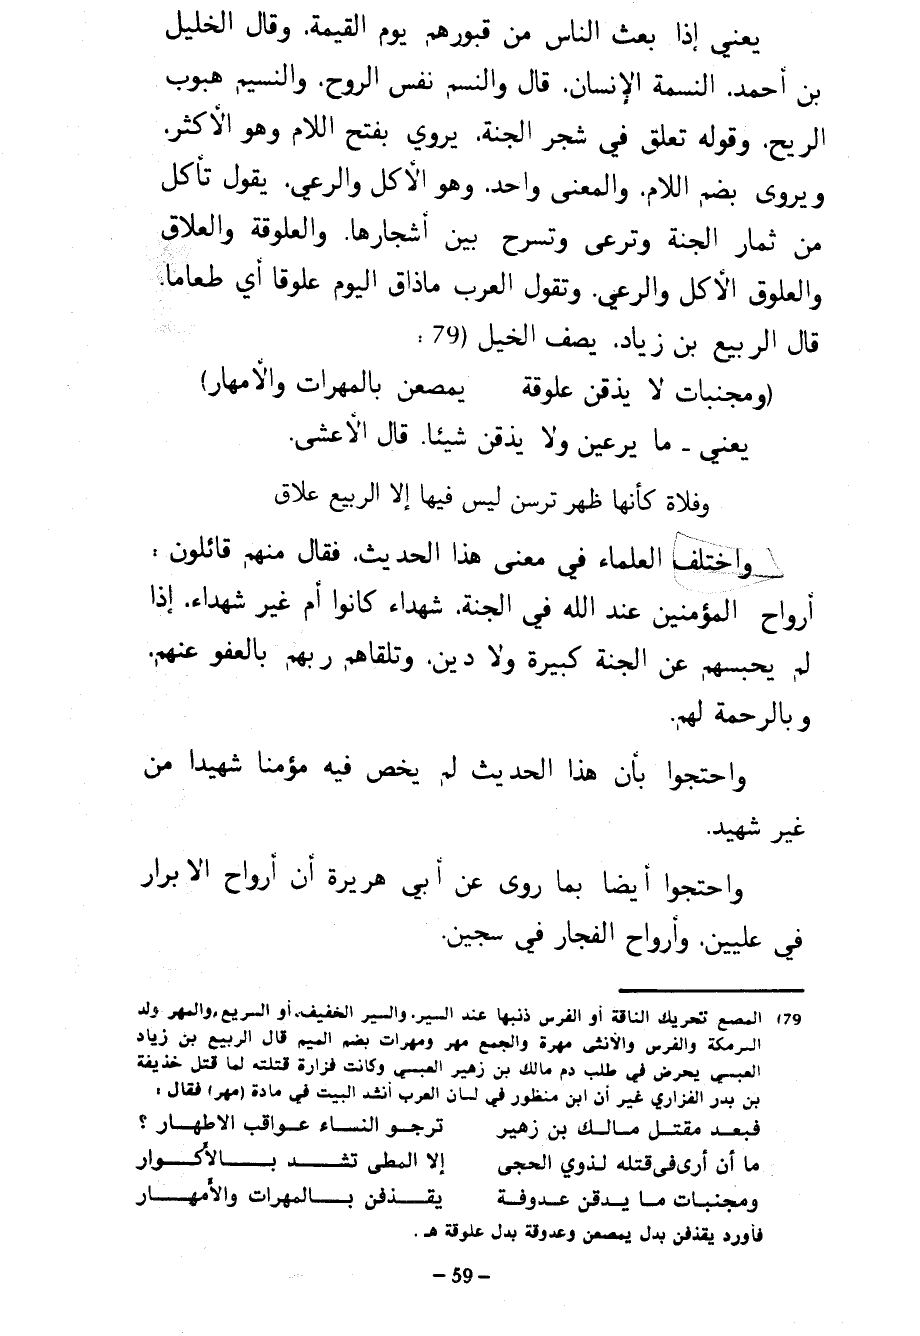 يعني إذا بعث الناس من قبورهم يوم القيمة. وقال الخليل
بن أحمد. النسمة الإنسان. قال والنسم نفس الروح. والنسيم هبوب
الريح. وقوله تعلق في شجر الجنة. يروي بفتح اللام وهو الأكثر.
ويروى بضم اللام. والمعنى واحد. وهو الأكل والرعي. يقول تأكل
من ثمار الجنة وترعى وتسرح بين أشجارها. والعلوقة والعلاق
والعلوق الأكل والرعي. وتقول العرب ماذاق اليوم علوقا أي طعاما.
قال الربيع بن زياد. يصف الخيل (79 :
(ومجنبات لا يذقن علوقة يمصعن بالمهرات والأمهار)
يعني ـ ما يرعين ولا يذقن شيئا. قال الأعشى.
وفلاة كأنها ظهر ترسن ليس فيها إلا الربيع علاق
واختلف العلماء في معنى هذا الحديث. فقال منهم قائلون :
أرواح المؤمنين عند الله في الجنة. شهداء كانوا أم غير شهداء. إذا
لم يحبسهم عن الجنة كبيرة ولا دين. وتلقاهم ربهم بالعفو عنهم.
وبالرحمة لهم.
واحتجوا بأن هذا الحديث لم يخص فيه مؤمنا شهيدا من
غير شهيد.
واحتجوا أيضا بما روى عن أبي هريرة أن أرواح الابرار
في عليين. وأرواح الفجار في سجين.
79) المصع تحريك الناقة أو الفرس ذنبها عند السير. والسير الخفيف. أو السريع، والمهر ولد
الرمكة والفرس والأنثى مهرة والجمع مهر ومهرات بضم الميم قال الربيع بن زياد
العبسي يحرض في طلب دم مالك بن زهير العبسي وكانت فزارة قتلته لما قتل خذيفة
بن بدر الفزاري غير أن ابن منظور في لسان العرب أنشد البيت في مادة (مهر) فقال :
فبعد مقتل مالك بن زهير ترجو النساء عواقب الاطهار ؟
ما أن أرى في قتله لذوي الحجى إلا المطى تشد بالأكوار
ومجنبات ما يدقن عدوفة يقذفن بالمهرات والأمهار
فأورد يقذفن بدل يمصعن وعدوقة بدل علوقة هـ .
– 59 –